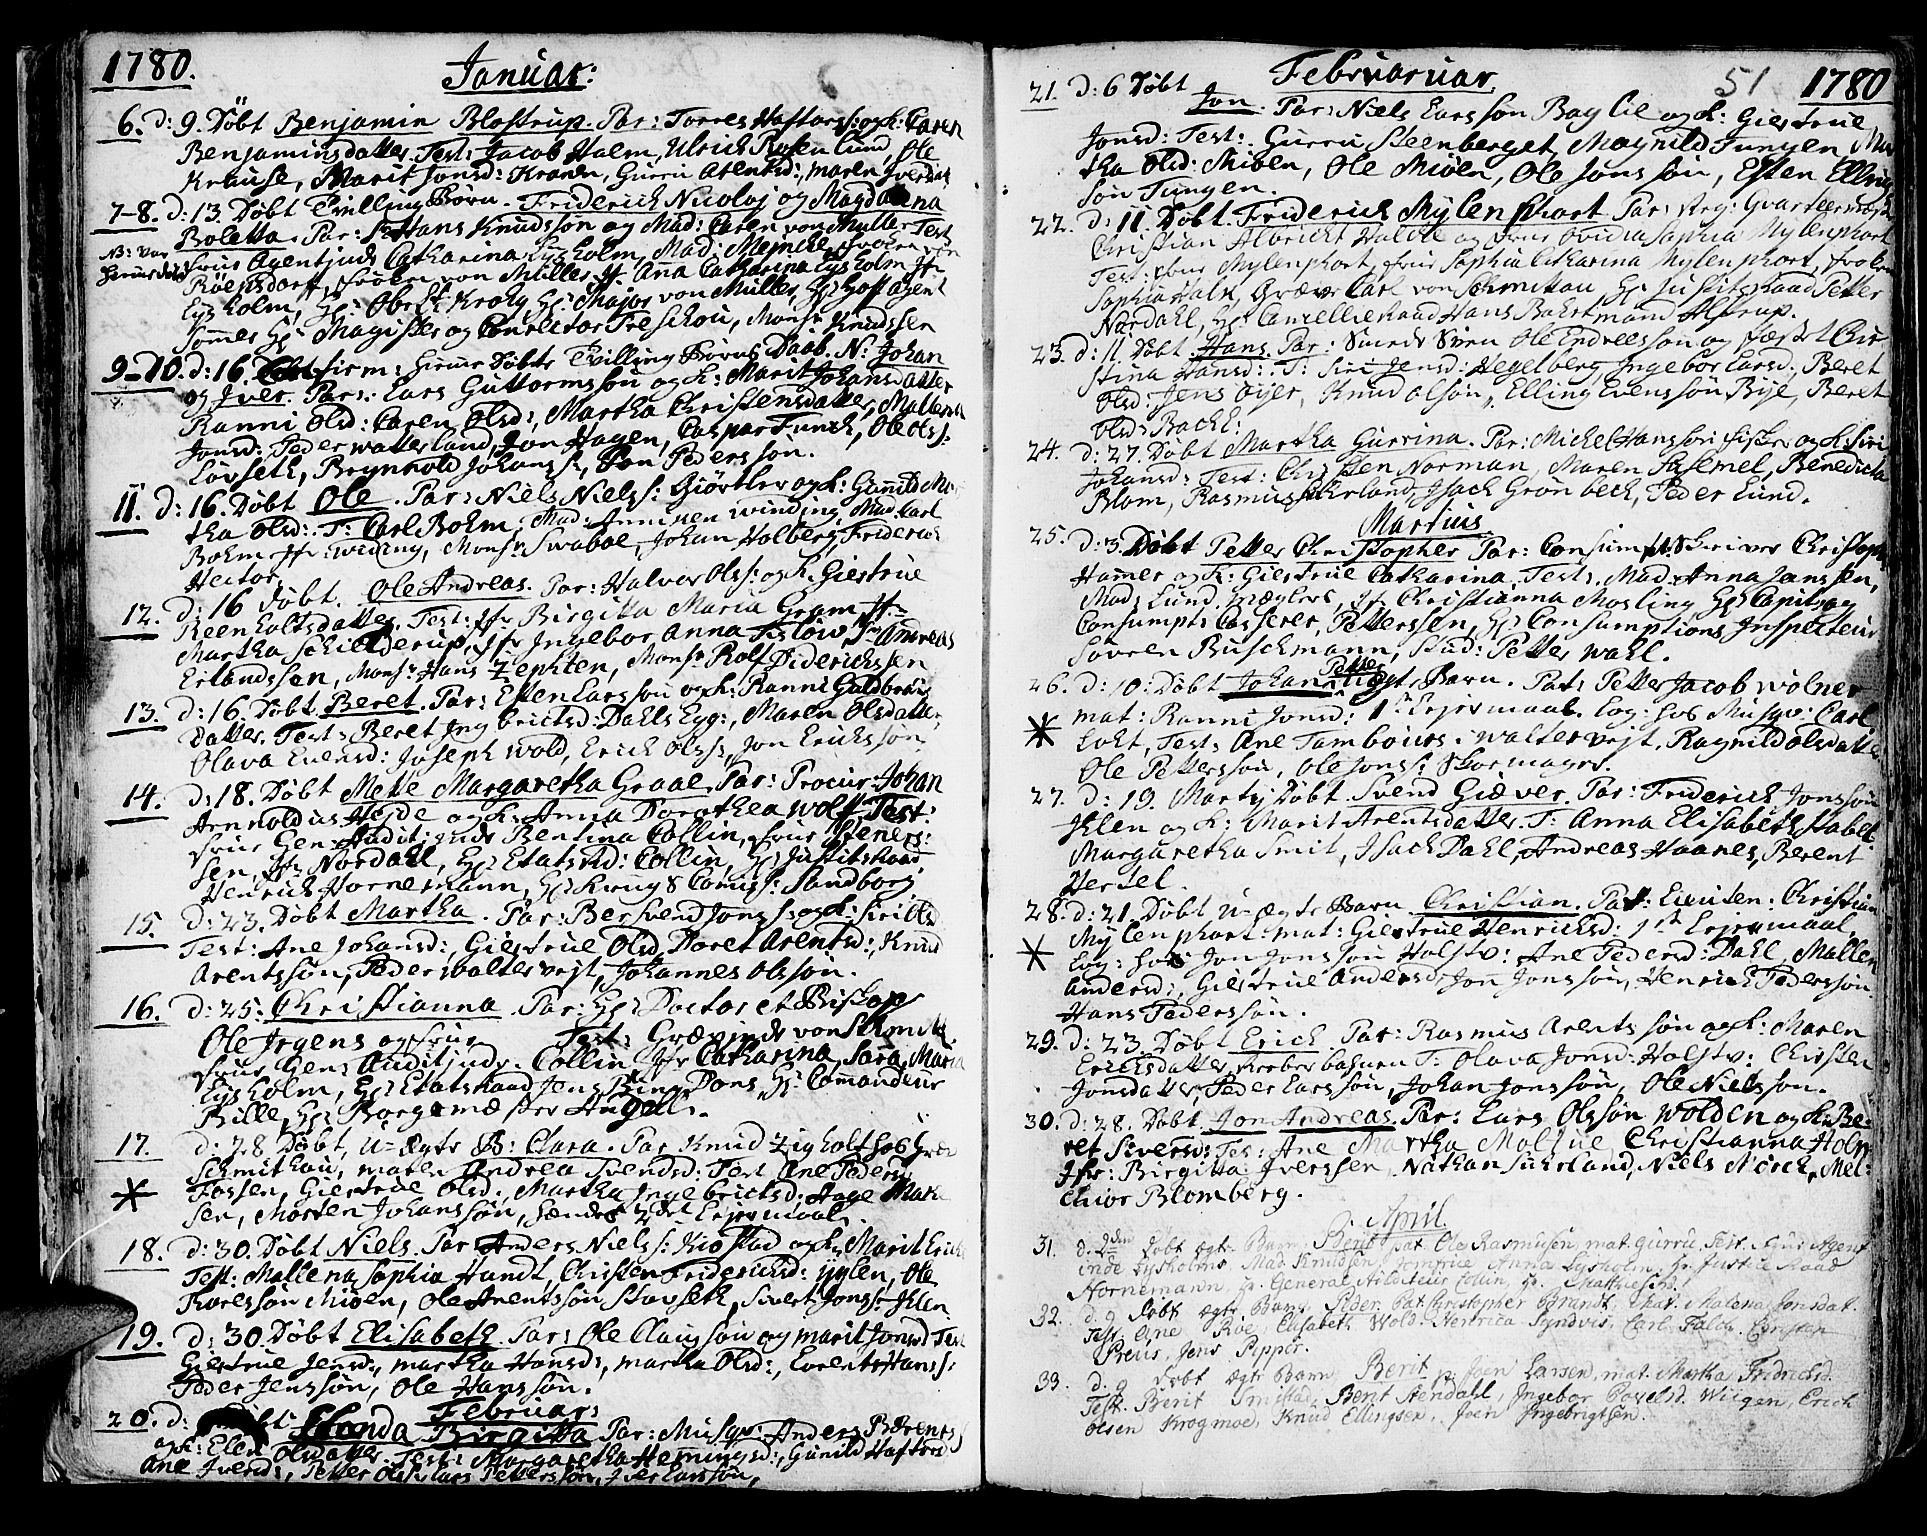 1780. Januar:
6. d: 9. Döbt Benjamin Blostrup. Par: Torres Haftorss: og k: Caren
Benjaminsdatter. Test: Jacob Halm, Ulrich Rosenlund, Ole
Krause, Marit Jonsd: Kranen, Gurru Arentsd:, Maren Iversdat
7-8. d: 13. Döbt Tvilling Börn. Friderich Nicolaj og Magdalena
Boletta. Par: Hans Knudssön og Mad: Caren von Müller Test
NB: var fruw Agentinde Catharina Lysholm, Mad: Mejncke, frölen von
hiemedöbt Röepsdorff, frölen von Müller, Jf. Ana Catharina Lysholm Jfr
Lysholm, Hr: Oberst Krog, Hr: Major von Müller, Hr: Hoff Agent
Sommer Hr: Magister og Conrector Treschou, Monsr Knudssen
9-10. d: 16. Confirm: hiemme Döbte Tvilling Börns Daab. N: Johan
og Iver. Par: Lars Guttormssön og k: Marit Johansdatter
Ranni Olsd: Caren Olsd:, Martha Christensdatter, Mallena
Jonsd: Peder Watterland, Jon Hagen, Caspar Funch, Ole Olss:
Lövseth, Brynhold Johanss:, Jon Pederssön.
11. d: 16. Döbt Ole. Par: Niels Nielss: Giörtler og k: Gunild Mar
tha Olsd: T: Carl Bohm, Mad: Anniken Winding, Mad: Carl
Bohm Jfr: Winding, Monsr Swaboe, Johan Holberg, Friderich
Hector.
12. d: 16 döbt. Ole Andreas. Par: Halvor Olss: og k. Giertrue
Reenholtsdatter. Test: Jfr Birgitta Maria Gram Jfr:
Martha Schielderup, Jfr Ingebor Anna Tislöw, Andreas
Erlandssen, Monsr: Hans Zephten, Monsr Rolf Diderichssen
13. d: 16. Döbt Beret. Par: Esten Larssön og k: Ranni Guldbrans
datter. Test: Beret Ingbrictsd: Dahls Eyg:, Maren Olsdatter
Olava Evensd: Joseph Wold, Erich Olss:, Jon Erichssön.
14. d: 18. Döbt Mette Margaretha Graae. Par: Procur: Johan
Arnnoldus Hejde og k: Anna Dorothea Wolff. Test:
fruw Gen: Audit: inde Bentina Collin, fruw Steners:
sen, Jfr Nordahl, Hr: Etatsrd: Collin, Hr: Justitsraad
Henrich Hornemann, Hr: Krigs Comiss: Sandborg
15. d: 23. Döbt Martha. Par: Bersvend Jonss: og k: Siri Olsd
Test: Ane Johansd:, Giertrue Olsd, Doret Arentsd:, Knud
Arentssön, Peder Waltervejt, Johannes Olssön.
16. d: 25: Christianna. Par: Hr: Doctor et Biskop
Ole Irgens og frue Test: Grævinde von Schmitt.
fruw Gen: Auditinde. Collin, Jfr Catharina, Sara, Maria
Lysholm, Hr: Etatsraad Jens Bing Dons, Hr: Commandeur
Bille, Hr: Borgemæster Angell.
17. d: 28 Döbt, U-ægte B: Clara. Par: Knud Zigholt hos Græv
Schmithou, mater Andrea Svendsd: Test Ane Pedersd
Fossen, Giertrue Olsd:, Martha Ingebrictsd: Aage Mar
sen, Morten Johanssön, Hendes 2det Lejermaal.
18. d: 30. Döbt Niels. Par Anders Nielss: Kiöstad og k: Marit Erichs
Test: Mallena Sophia Hundt, Christen Friderichsd: Hylen, Ole
Thoressön Miöen, Ole Arentssön Stavseth, Sivert Jonss: Ihlen
19. d: 30. Döbt Elisabeth. Par: Ole Claussön og Marit Jonsd Test
Giertrue Jensd:, Martha Hansd:, Martha Olsd:, Lorents Hanss:
Peder Jenssön, Ole Hanssön.
Februar:
20. d: Döbt Birgitta Par: Musqv: Anders Börents
og k: Elen Olsdatter. Test: Margaretha Hemingsd:, Gunild Haftorsd
Ane Iversd:, Petter Olss: Lars Petterssön, Iver Larssön,
Februaruar 51 1780
21. d: 6 Döbt
Jon. Par: Niels Larssön Baglie og k: Giertrue
Jonsd: Test: Gurru Steenberget, Magnild Tungen, Mar
tha Olsd: Miöen, Ole Miöen, Ole Jonssön, Esten Elling
sön Tungen.
22. d: 11. Döbt. Friderich Mylenphort Par: Reg: Qvarteermester
Christian Albricht Halde og fruw Ovidia Sophia Mylenphort
Test: fruw Mylenphort, fruw Sophia Catharina Mylenphort, frölen
Sophia Halk, Græve Carl von Schmitau Hr: Justitsraad Petter
Nordahl, Hr: Cancellieraad Hans Bakstmand Alstrup.
23. d: 11. Döbt Hans. Par: Smeds Sven Ole Endressön og fæstet Chri
stina Hansd: T: Siri Jensd: Hegelberg, Ingebor Larsd: Beret
Olsd: Jens Öyer, Knud Olsön, Elling Evenssön Bye, Beret
Olsd: Bache:
24. d: 27. Döbt Martha Gurrina. Par: Michel Hanssön fisker og k: Siri
Johansd: Test: Christen Norman, Maren Sasemel, Benedicta
Blom, Rasmus Suhrland, Isach Grönbeck, Peder Lund.
Martius
25. d: 3. Döbt Petter Christopher Par: Consumpt: Skriver Christoph
Hammer og k: Giertrue Catharina. Test: Mad: Anna Janssen,
Mad: Lund Mæglers, Jfr Christianna Mosling Hr Capit: og
Consumpt: Casserer, Petterssen, Hr Consumptions Inspecteur
Sövren Buschmann, Stud: Petter Wahl.
26. d: 10: Döbt Johan Petter Uægt. Barn. Pat: Petter Jacob Wölner
mat: Ranni Jonsd: 1ste Lejermaal. Log: hos Musqv: Carl
Lokt, Test: Ane Tambours: Waltervejt. Ragnild Olsdatter
Ole Petterssön, Ole Jonss: Skormager.
27. d: 19. Martij Döbt Svend Giæver. Par: Friderich Jonssön
Ihlen og k: Marit Arentsdatter. T: Anna Elisabeth Stabel
Margaretha Smit, Isach Dahl, Andreas Haanes, Berent
Hersel.
28. d: 21. Döbt U-ægte Barn Christian. Pat: Lieuten: Christian
Mylenphort mat: Giertrue Henrichsd: 1ste Lejermaal,
Log: hos Jon Jonssön Holstv: Ane Pedersd: Dahl, Mallen
Andersd:, Giertrue Andersd: Jon Jonssön, Henrich Pederssön
Hans Pederssön.
29. d: 23. Döbt Erich. Par: Rasmus Arentssön og k: Maren
Erichsdatter, T: Olava Jonsd: Holstv: Chirsten
Jonsdatter, Peder Larssön, Johan Jonssön, Ole Nielssön.
30. d: 28. Döbt Jon Andreas. Par: Lars Olssön Wolden og k: Be:
ret Siversd: Tes: Ane Martha Moltue Christianna Holm
Jfr: Birgitta Iverssen, Nathan Suhrland, Niels Mörch, Mel:
chior Blomberg.
April.
31. d. 2den Döbt ægte Barn, Berit pat. Ole Rasmusen, mat. Gurru, Test. Frue Agent
inde Lysholms, Mad. Knudsen, Jomfrue Anna Lysholm, Hr. Justice Raad
Hornemann, Hr. General Auditeur Collin, Hr. Matthiesen.
32. d. 9 Döbt ægte Barn, Peder. Pat. Christopher Brandt, Mat. Malena Jonsdat.
Test. Ane Roe, Elisabeth Wold. Henrica Syndvis, Carl Falch, Christen
Preus, Jens Pepper.
33. d. 9 Döbt ægte Barn, Berit p. Joen Larsen, mat. Martha Fridrichsd.
Test. Berit Smistad, Berit Stendahl, Ingebor Povelsd. Wiigen, Erich
Olsen Krogmoe, Knud Ellingsen, Joen Ingebrigtsen.